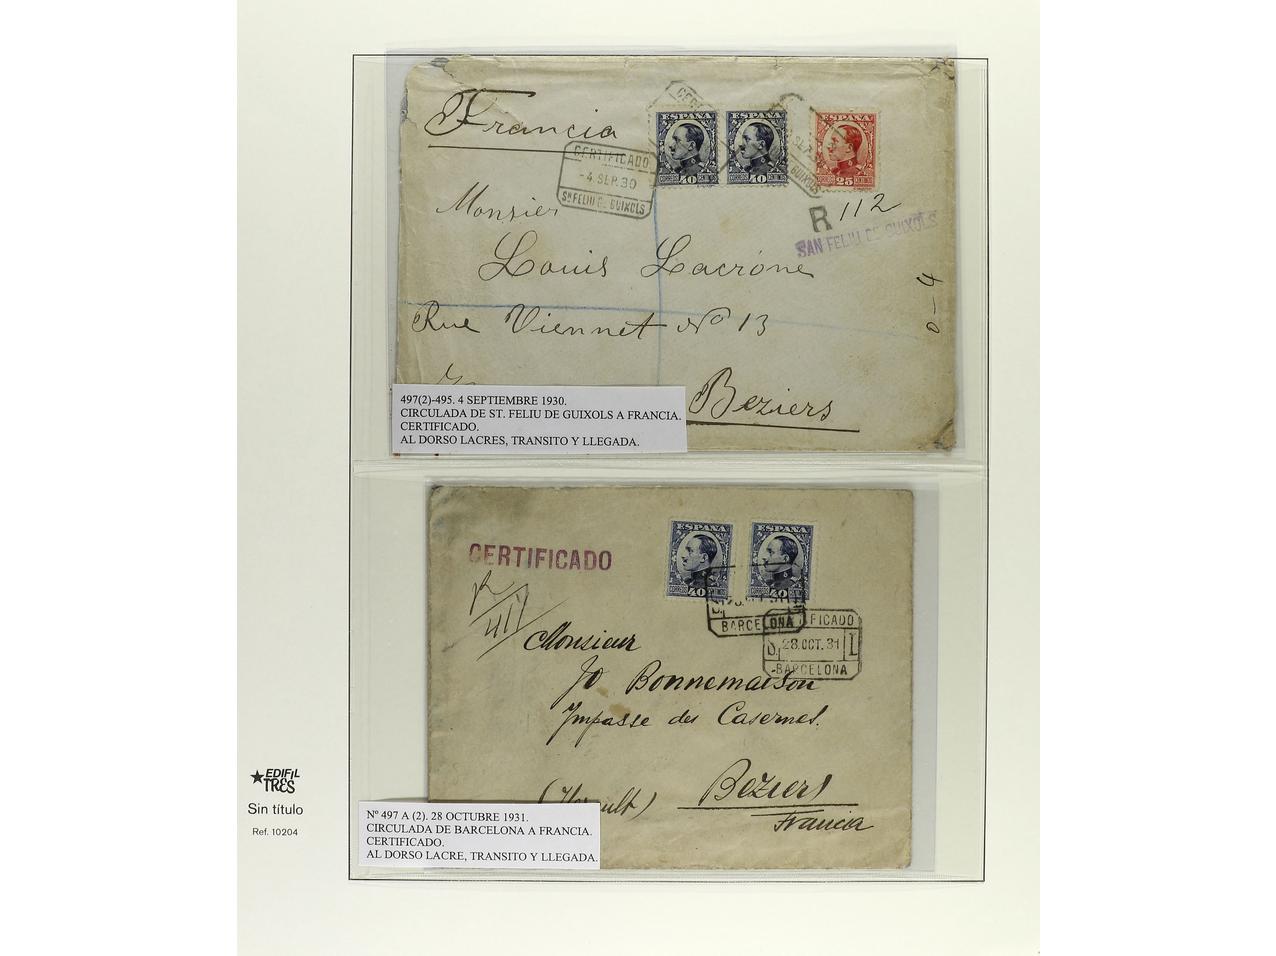 Francia
CERTIFICADO
-4 SEP.30
Sn FELIU DE GUIXOLS
ESPAÑA
CORREOS 40 CENTIMOS
ESPAÑA
CORREOS 40 CENTIMOS
ESPAÑA
CORREOS 25 CENTIMOS
R 112
SAN FELIU DE GUIXOLS
0-4
Monsier
Louis Lacróne
Rue Viennet Nº 13
Beziers
497(2)-495. 4 SEPTIEMBRE 1930.
CIRCULADA DE ST. FELIU DE GUIXOLS A FRANCIA.
CERTIFICADO.
AL DORSO LACRES, TRANSITO Y LLEGADA.
ESPAÑA
CORREOS 40 CENTIMOS
ESPAÑA
CORREOS 40 CENTIMOS
CERTIFICADO
R
417
BARCELONA
28 OCT. 31
-BARCELONA
Monsieur
Jo Bonnemaison
Impasse des Casernes.
Beziers
Francia
Nº 497 A (2). 28 OCTUBRE 1931.
CIRCULADA DE BARCELONA A FRANCIA.
CERTIFICADO.
AL DORSO LACRE, TRANSITO Y LLEGADA.
EDIFIL
TRES
Sin título
Ref. 10204